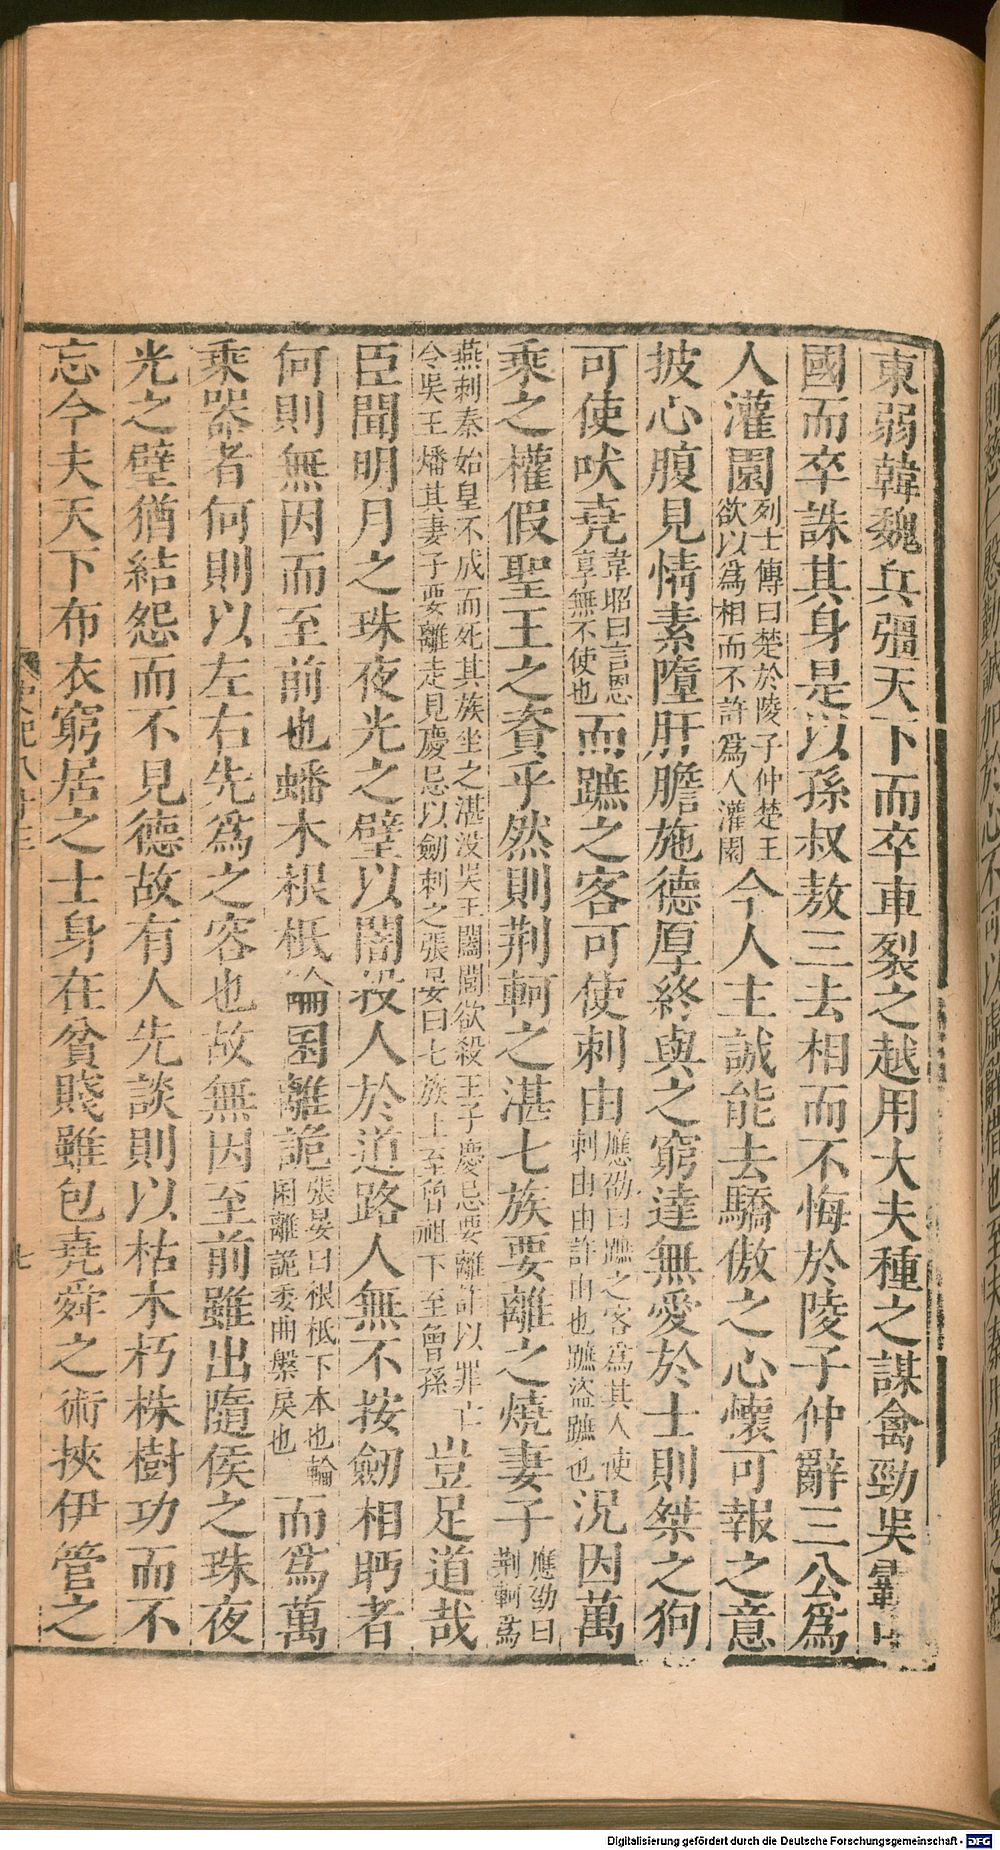 東弱韓魏兵彊天下而卒車裂之越用大夫種之謀禽勁吳霸中
國而卒誅其身是以孫叔敖三去相而不悔於陵子仲辭三公爲
人灌園列士傳曰楚於陵子仲楚王欲以爲相而不許爲人灌園今人主誠能去驕傲之心懷可報之意
披心腹見情素隳肝膽施德厚終與之窮達無愛於士則桀之狗
可使吠堯韋昭曰言恩厚無不使也而蹠之客可使刺由應劭曰蹠之客爲其人使刺由由許由也蹠盜蹠也況因萬
乘之權假聖王之資乎然則荆軻之湛七族要離之燒妻子應劭曰荆軻爲
燕刺秦始皇不成而死其族坐之湛没吳王闔閭欲殺王子慶忌要離詐以罪亡令吳王燔其妻子要離走見慶忌以劒刺之張晏曰七族上至曾祖下至曾孫豈足道哉
臣聞明月之珠夜光之璧以闇投人於道路人無不按劒相眄者
何則無因而至前也蟠木根柢輪囷離詭張晏曰根柢下本也輪囷離詭委曲槃戾也而爲萬
乘器者何則以左右先爲之容也故無因至前雖出隨侯之珠夜
光之璧猶結怨而不見德故有人先談則以枯木朽株樹功而不
忘今夫天下布衣窮居之士身在貧賤雖包堯舜之術挾伊管之
七
Digitalisierung gefördert durch die Deutsche Forschungsgemeinschaft - DFG